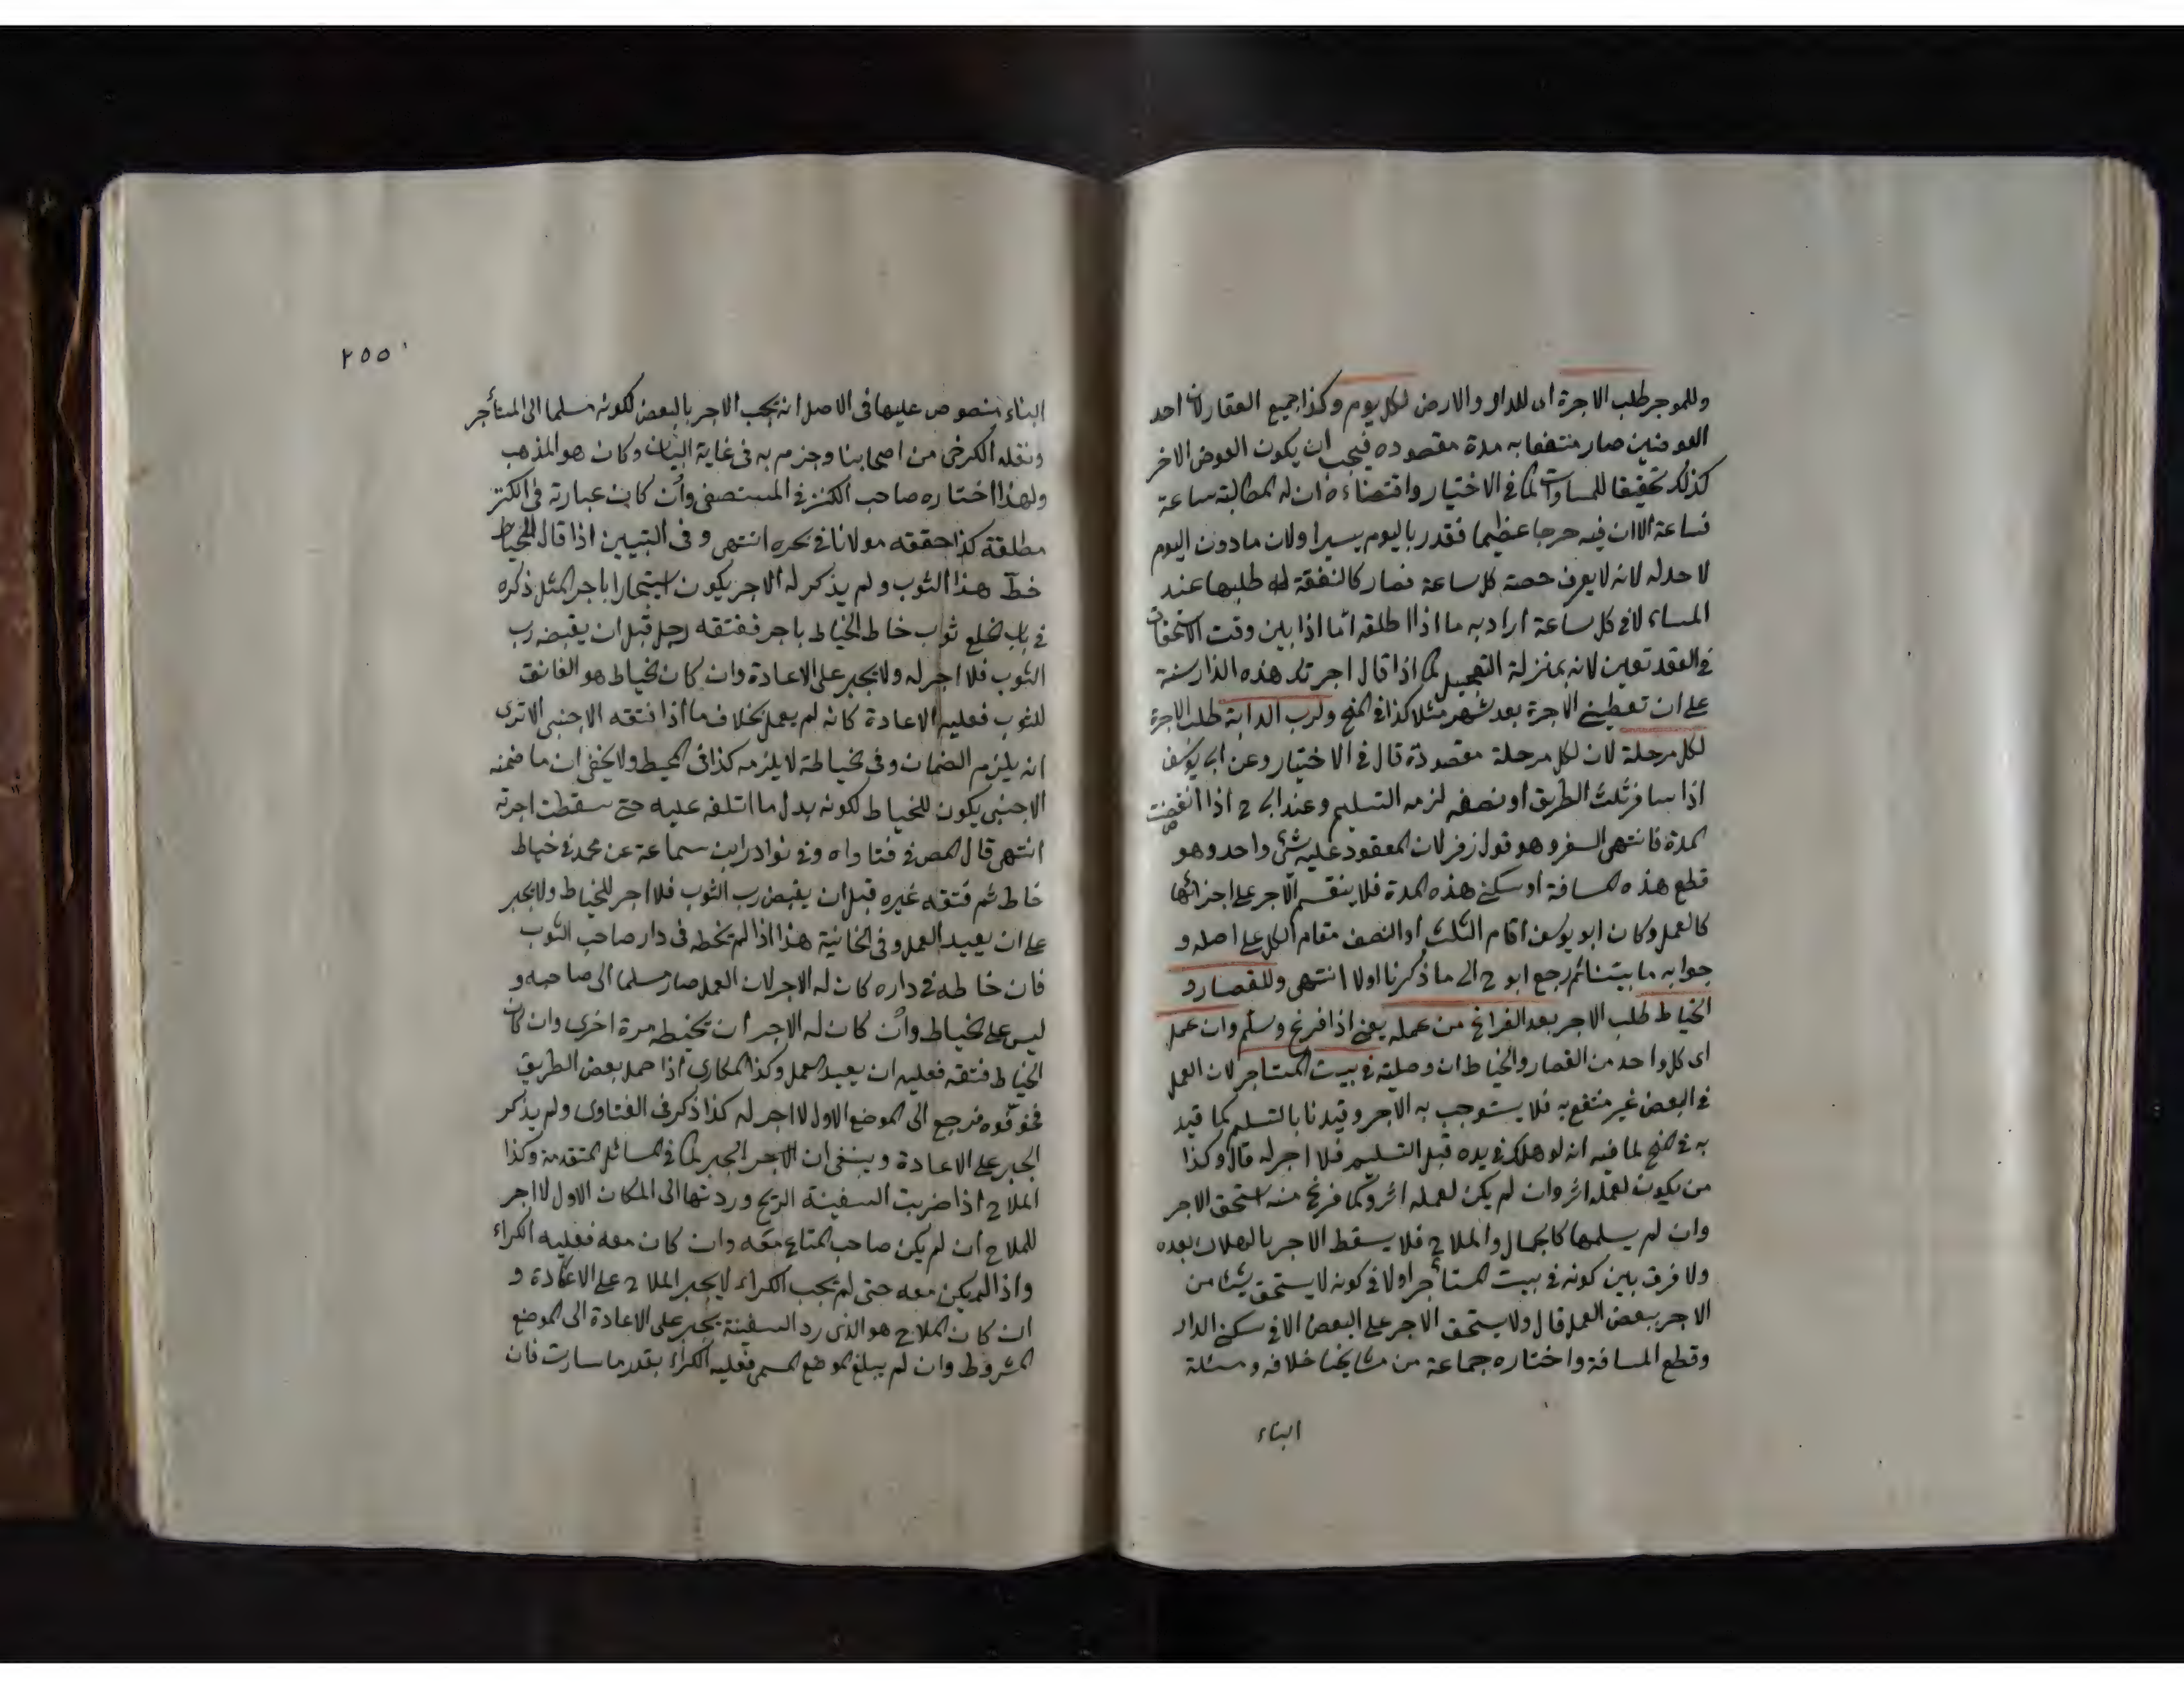 وللموجر طلب الاجرة اى للدار والارض لكل يوم وكذا جميع العقار لان احد
العوضين صار منتفعا به مدة مقصوده فيجب ان يكون العوض الاخر
كذلك تحقيقا للمساوات كما فى الاختيار واقتضاءه ان له المطالبة ساعة
فساعة الا ان فيه حرجا عظيما فقدر باليوم يسيرا ولان ما دون اليوم
لا حد له لانه لا يعرف حصة كل ساعة فصار كالنفقة له طلبها عند
المساء لا فى كل ساعة اراد به ما اذا اطلقه اما اذا بين وقت الاستحقاق
فى العقد تعين لانه بمنزلة التعجيل كما اذا قال اجرتك هذه الدار سنة
على ان تعطينى الاجرة بعد شهر مثلا كذا فى المنح ولرب الدابة طلب الاجرة
لكل مرحلة لان لكل مرحلة مقصودة قال فى الاختيار وعن ابى يوسف
اذا سافر ثلث الطريق او نصفه لزمه التسليم وعند ابى ح اذا انقضت
المدة فانتهى السفر وهو قول زفر لان المعقود عليه شئ واحد وهو
قطع هذه المسافة او سكنى هذه المدة فلا ينقسم الاجر على اجزائها
كالعمل وكان ابو يوسف اقام الثلث او النصف مقام الكل على اصله و
جوابه ما بيننا ثم رجع ابو ح الى ما ذكرنا اولا انتهى وللقصار و
الخياط طلب الاجر بعد الفراغ من عمله يعنى اذا فرغ وسلم وان عمل
اى كل واحد من القصار والخياط ان وصلية فى بيت المستاجر لان العمل
فى البعض غير منتفع به فلا يستوجب به الاجر وقيدنا بالتسليم كما قيد
به فى المنح لما فيه انه لو هلك فى يده قبل التسليم فلا اجر له قال وكذا
من يكون لعمله اثر وان لم يكن لعمله اثر وكما فرغ منه استحق الاجر
وان لم يسلمها كالجمال والملاح فلا يسقط الاجر بالهلاك بعده
ولا فرق بين كونه فى بيت المستأجر اولا فى كونه لا يستحق شيئا من
الاجر ببعض العمل قال ولا يستحق الاجر على البعض الا فى سكنى الدار
وقطع المسافة واختاره جماعة من مشايخنا خلافه ومسئلة
البناء
٢٥٥
البناء منصوص عليها فى الاصل انه يجب الاجر بالبعض لكونه مسلما الى المستأجر
ونقله الكرخى من اصحابنا وجزم به فى غاية البيان وكان هو المذهب
ولهذا اختاره صاحب الكنز فى المستصفى وان كانت عبارته فى الكنز
مطلقة كذا حققه مولانا فى بحره انتهى وفى التبيين اذا قال للخياط
خط هذا الثوب ولم يذكر له الاجر يكون استيجارا باجر المثل ذكره
فى باب الخلع ثوب خاط الخياط باجر ففتقه رجل قبل ان يقبض رب
الثوب فلا اجر له ولا يجبر على الاعادة وان كان الخياط هو الفاتق
للثوب فعليه الاعادة كانه لم يعمل بخلاف ما اذا فتقه الاجنبى الا ترى
انه يلزم الضمان وفى الخياطة لا يلزمه كذا فى المحيط ولا يخفى ان ما ضمنه
الاجنبى يكون للخياط لكونه بدل ما اتلفه عليه حتى سقطت اجرته
انتهى قال المص فى فتاواه وفى نوادر ابن سماعة عن محمد فى خياط
خاط ثم فتقه غيره قبل ان يقبض رب الثوب فلا اجر للخياط ولا يجبر
على ان يعيد العمل وفى الخانية هذا اذا لم يخطه فى دار صاحب الثوب
فان خاطه فى داره كان له الاجر لان العمل صار مسلما الى صاحبه و
ليس على الخياط وان كان له الاجر ان يخيطه مرة اخرى وان كان
الخياط فتقه فعليه ان يعيد العمل وكذا المكارى اذا حمل بعض الطريق
فخوفوه فرجع الى الموضع الاول لا اجر له كذا ذكر فى الفتاوى ولم يذكر
الجبر على الاعادة وينبغى ان الاجر الجبر كما فى المسائل المتقدمة وكذا
الملاح اذا ضربت السفينة الريح وردتها الى المكان الاول لا اجر
للملاح ان لم يكن صاحب المتاع معه وان كان معه فعليه الكراء
واذا لم يكن معه حتى لم يجب الكراء لا يجبر الملاح على الاعادة و
ان كان الملاح هو الذى رد السفينة يجبر على الاعادة الى الموضع
المشروط وان لم يبلغ الموضع المسمى فعليه الكراء بقدر ما سارت فان